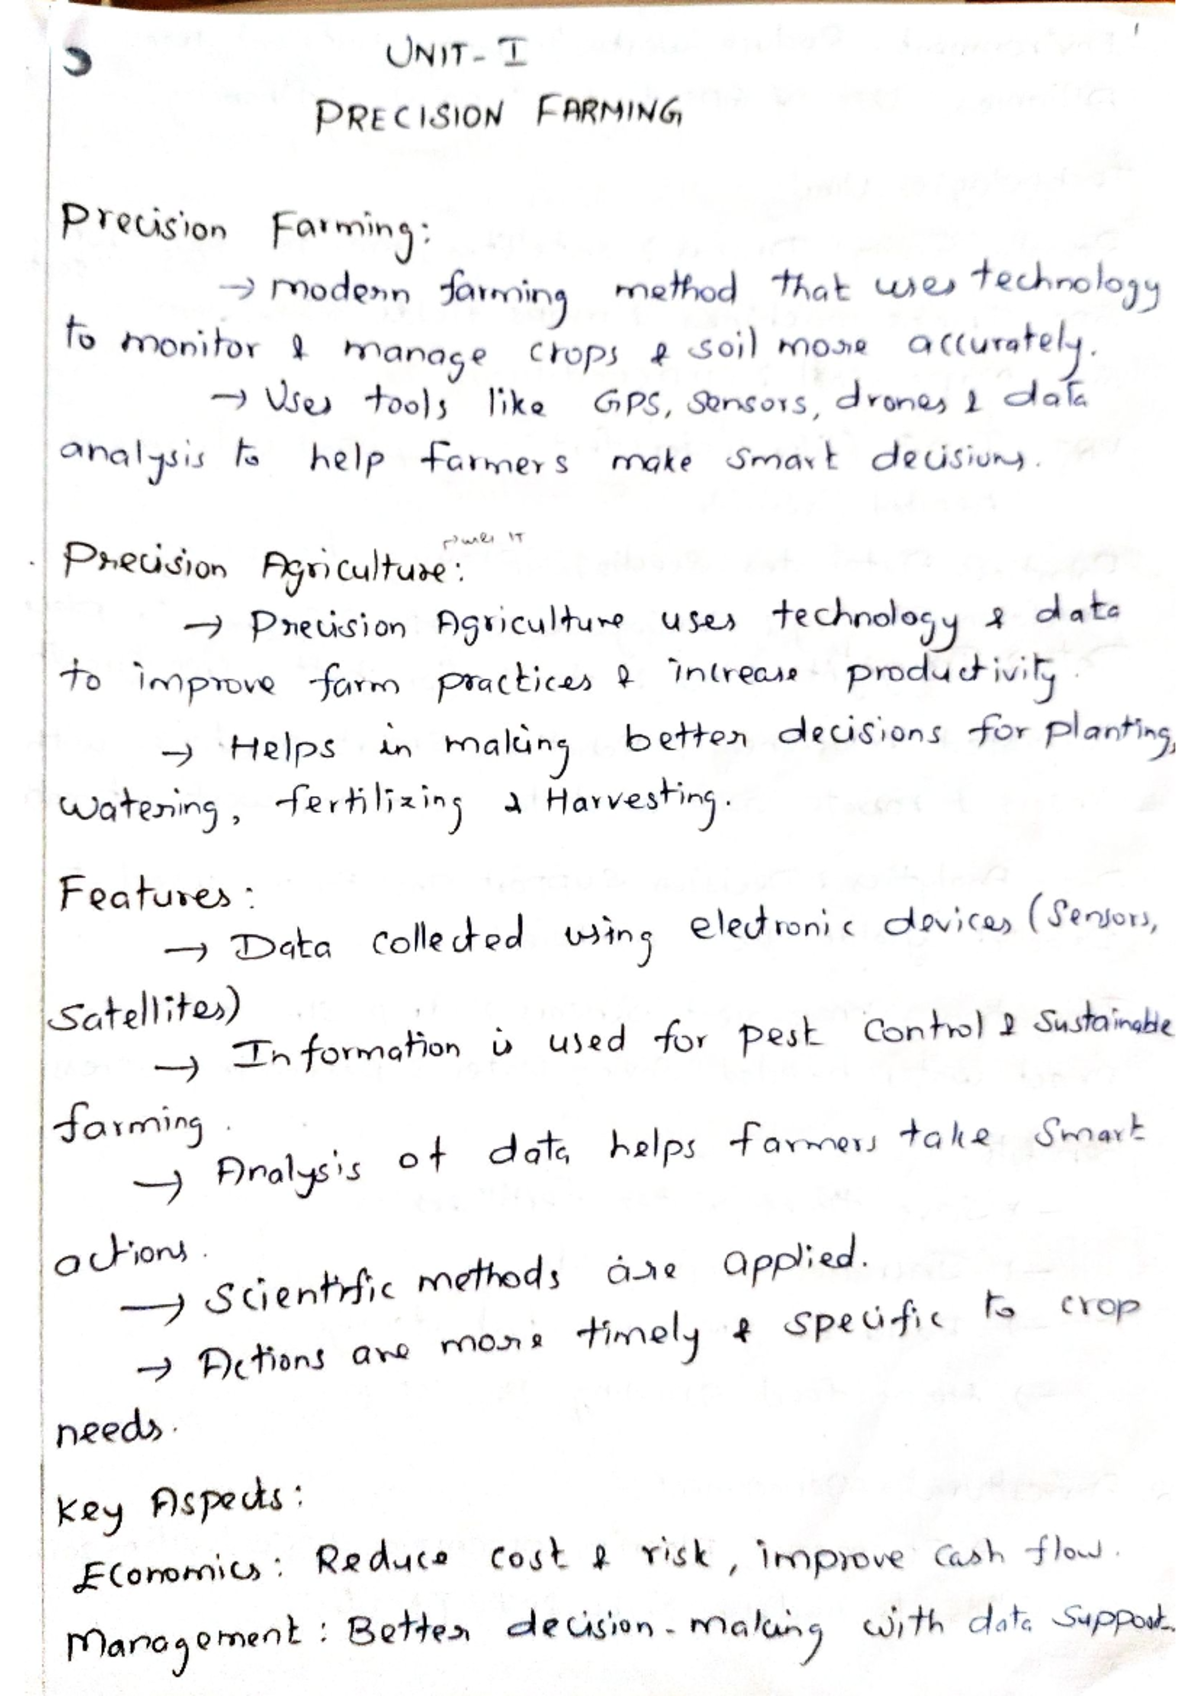 UNIT - I
PRECISION FARMING
Precision Farming:
→ modern farming method that uses technology
to monitor & manage crops & soil more accurately.
→ Uses tools like GPS, sensors, drones & data
analysis to help farmers make smart decisions.
Precision Agriculture:
→ Precision Agriculture uses technology & data
to improve farm practices & increase productivity.
→ Helps in making better decisions for planting,
watering, fertilizing & Harvesting.
Features:
→ Data collected using electronic devices (Sensors,
Satellites)
→ Information is used for pest control & Sustainable
farming.
→ Analysis of data helps farmers take Smart
actions.
→ Scientific methods are applied.
→ Actions are more timely & specific to crop
needs.
Key Aspects:
Economics: Reduce cost & risk, improve cash flow.
Management: Better decision-making with data support.